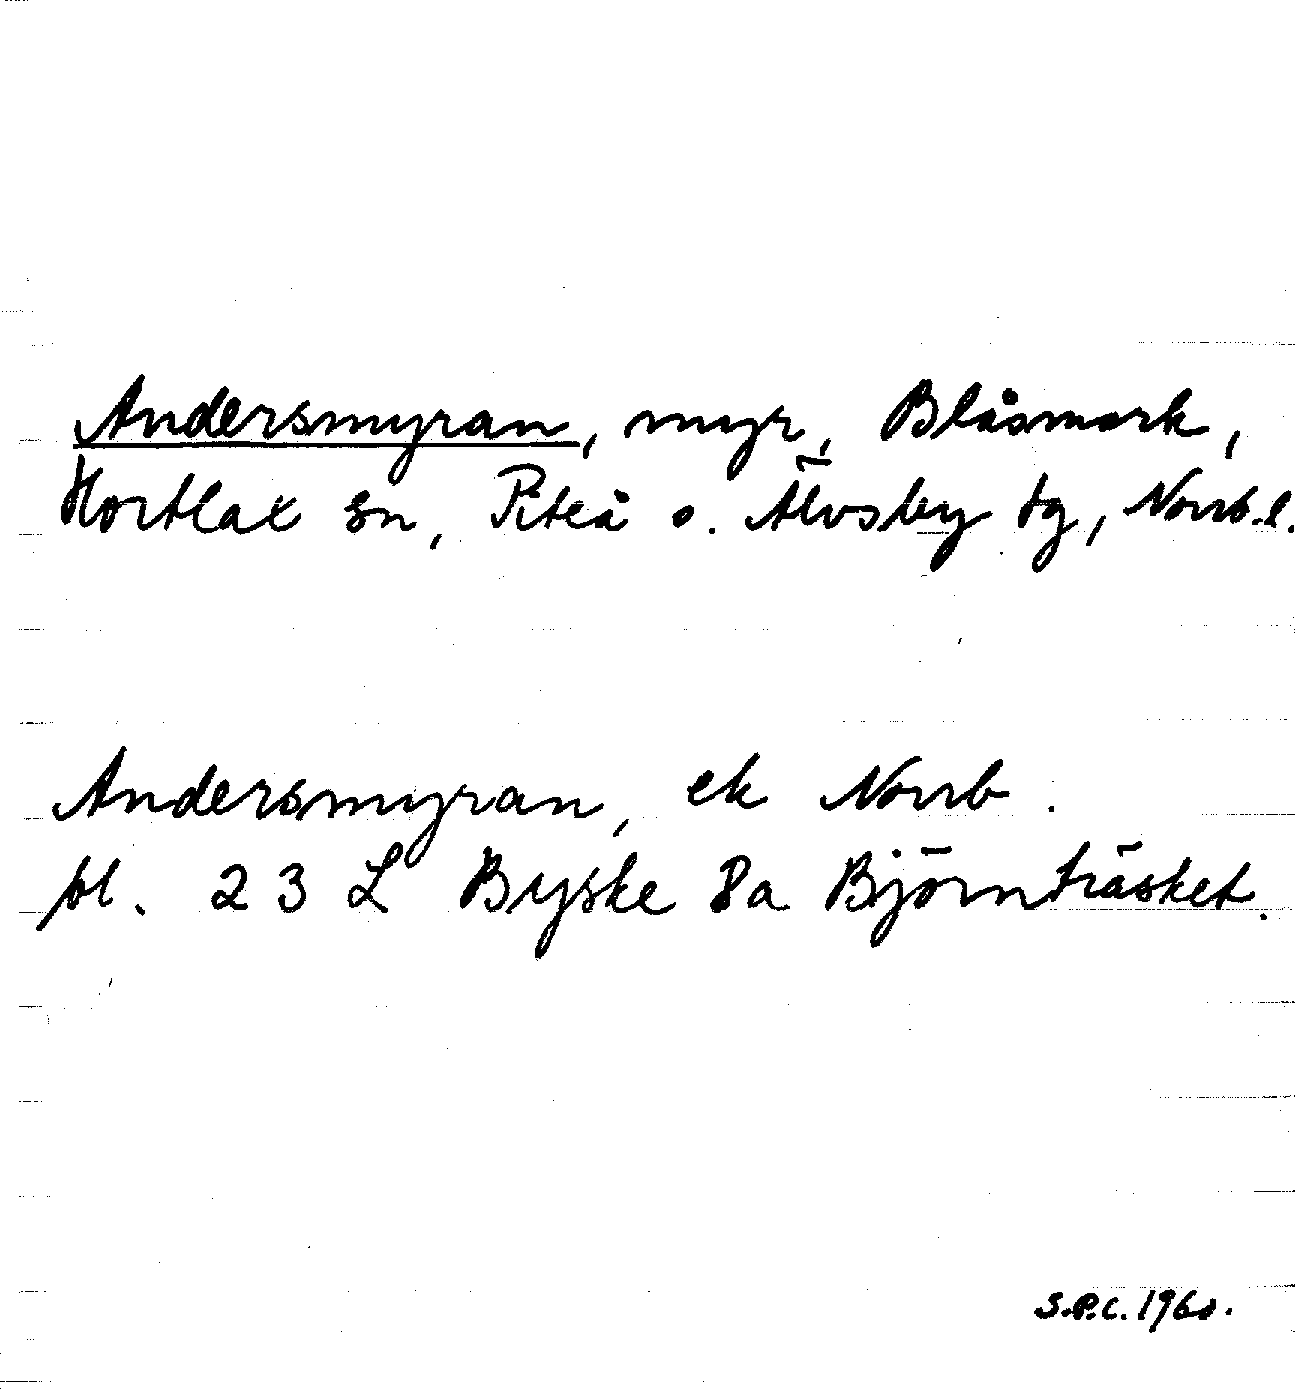 Andersmyran, myr, Blåsmark,
Hortlax sn, Piteå o. Älvsby tg, Norrb.l.
Andersmyran, ek Norrb.
bl. 23 L Byske 8a Björnträsket.
S.P.C. 1960.